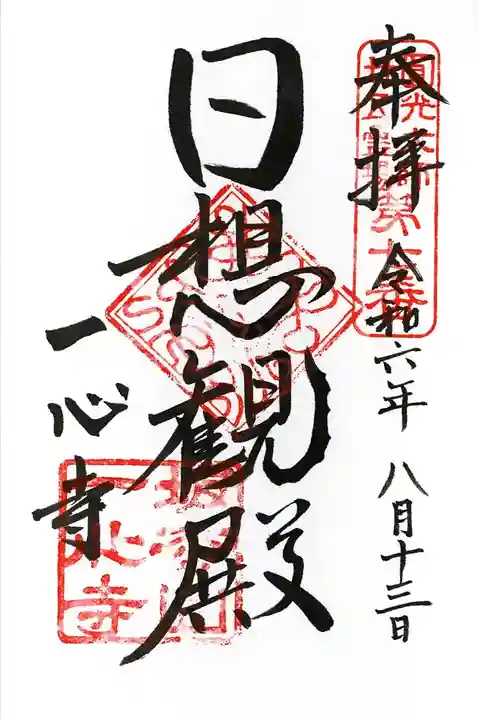 奉拝
令和六年 八月十三日
日想観殿
一心寺